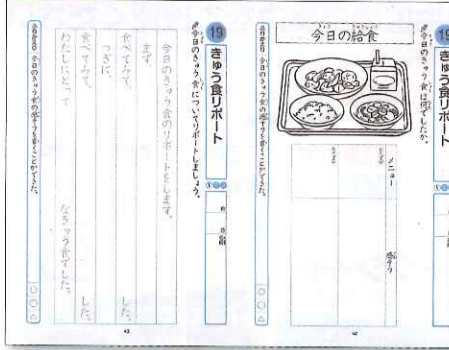 19
きゅう食リポート
今日のきゅう食は何でしたか。
今日の給食
メニュー
感そう
今日のきゅう食の感そうを書くことができた。
42
19
きゅう食リポート
今日のきゅう食についてリポートしましょう。
今日のきゅう食のリポートをします。
まず、
食べてみて、
した。
つぎに、
食べてみて、
した。
わたしにとって
なきゅう食でした。
今日のきゅう食の感そうを書くことができた。
43